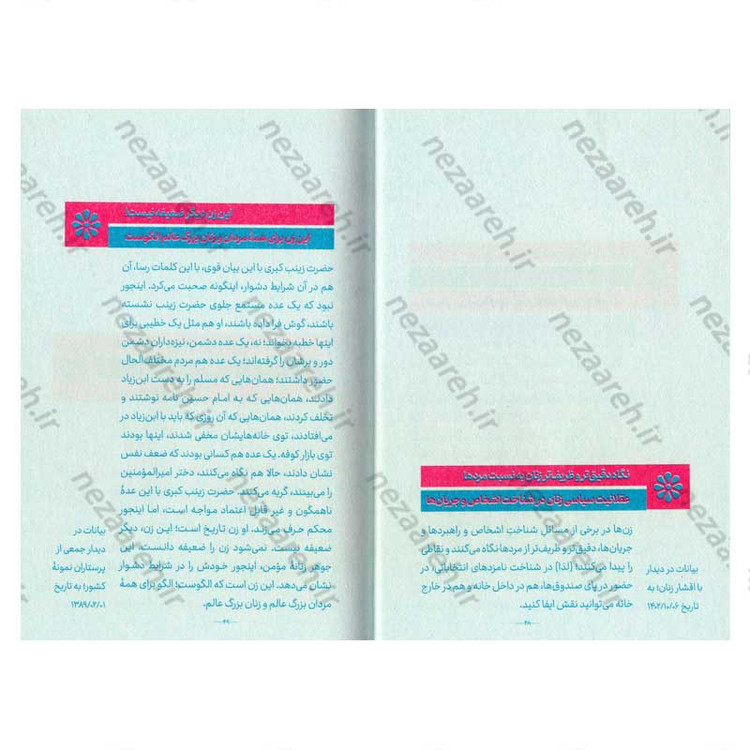 نگاه دقیق‌تر و ظریف‌تر زنان به نسبت مردها
عقلانیت سیاسی زنان در شناخت اشخاص و جریان‌ها
زن‌ها در برخی از مسائلِ شناختِ اشخاص و راهبردها و
جریان‌ها، دقیق‌تر و ظریف‌تر از مردها نگاه می‌کنند و نقاطی
را پیدا می‌کنند؛ [لذا] در شناخت نامزدهای انتخاباتی، در
حضور در پای صندوق‌ها، هم در داخل خانه و هم در خارج
خانه می‌توانید نقش ایفا کنید.
بیانات در دیدار
با اقشار زنان؛ به
تاریخ ۱۴۰۲/۱۰/۰۶
۴۸
این زن دیگر ضعیفه نیست!
این زن برای همۀ مردان و زنان بزرگ عالم الگوست
حضرت زینب کبری با این بیان قوی، با این کلمات رسا، آن
هم در آن شرایط دشوار، اینگونه صحبت می‌کرد. اینجور
نبود که یک عده مستمع جلوی حضرت زینب نشسته
باشند، گوش فرا داده باشند، او هم مثل یک خطیبی برای
اینها خطبه بخواند؛ نه، یک عده دشمن، نیزه‌داران دشمن
دور و برشان را گرفته‌اند؛ یک عده هم مردم مختلف‌الحال
حضور داشتند؛ همان‌هایی که مسلم را به دست ابن‌زیاد
دادند، همان‌هایی که به امام حسین نامه نوشتند و
تخلف کردند، همان‌هایی که آن روزی که باید با ابن‌زیاد در
می‌افتادند، توی خانه‌هایشان مخفی شدند، اینها بودند
توی بازار کوفه. یک عده هم کسانی بودند که ضعف نفس
نشان دادند، حالا هم نگاه می‌کنند، دختر امیرالمؤمنین
را می‌بینند، گریه می‌کنند. حضرت زینب کبری با این عدۀ
ناهمگون و غیر قابل اعتماد مواجه است، اما اینجور
محکم حرف می‌زند. او زن تاریخ است؛ این زن، دیگر
ضعیفه نیست. نمی‌شود زن را ضعیفه دانست. این
جوهر زنانۀ مؤمن، اینجور خودش را در شرایط دشوار
نشان می‌دهد. این زن است که الگوست؛ الگو برای همۀ
مردان بزرگ عالم و زنان بزرگ عالم.
بیانات در
دیدار جمعی از
پرستاران نمونۀ
کشور؛ به تاریخ
۱۳۸۹/۰۲/۰۱
۴۹
nezaareh.ir
nezaareh.ir
nezaareh.ir
nezaareh.ir
nezaareh.ir
nezaareh.ir